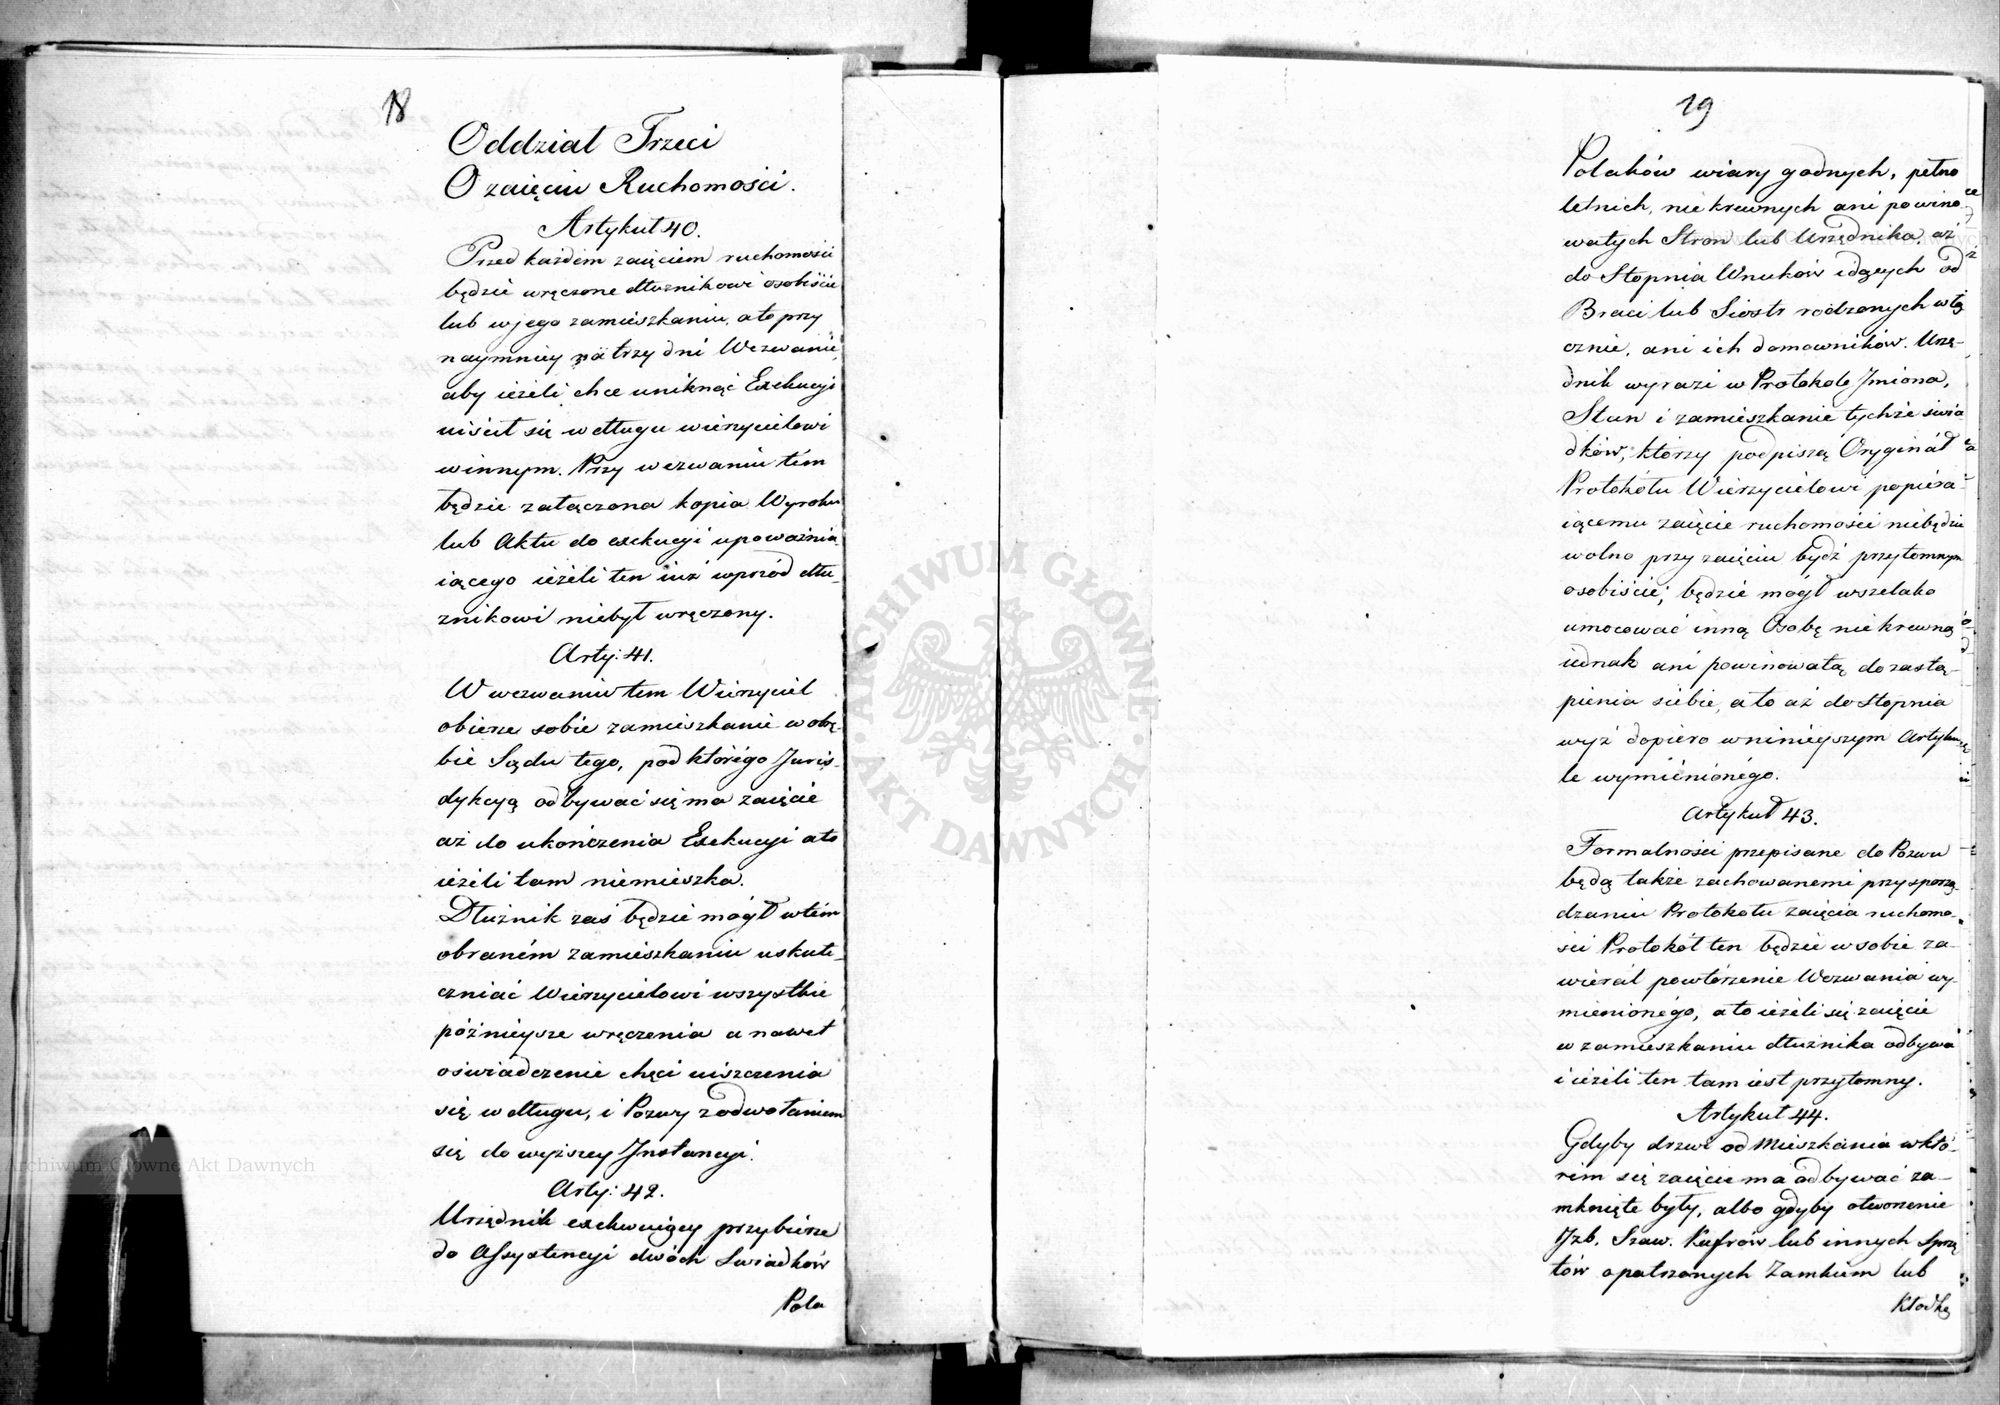 18
Oddział Trzeci
O zaięciu Ruchomości.
Artykuł 40.
Przed każdem zaięciem ruchomości
będzie wręczone dłużnikowi osobiście
lub w jego zamieszkaniu, a to przy
naymniey na trzy dni Wezwanie,
aby ieżeli chce uniknąć Exekucyi
uiścił się w długu wierzycielowi
winnym. Przy wezwaniu tém
będzie załączona kopia Wyroku
lub Aktu do exekucyi upoważnia
iącego ieżeli ten iuż wprzód dłu-
żnikowi niebył wręczony.
Arty: 41.
W wezwaniu tem Wierzyciel
obierze sobie zamieszkanie w obrę-
bie Sądu tego, pod którégo Juris-
dykcyą odbywać się ma zaięcie
aż do ukończenia Exekucyi a to
ieżeli tam niemieszka.
Dłużnik zaś będzie mógł w tém
obraném zamieszkaniu uskute-
czniać Wierzycielowi wszystkie
późnieysze wręczenia a nawet
oświadczenie chęci uiszczenia
się w długu, i Pozwy z odwołaniem
się do wyższey Instancyi.
Arty: 42.
Urzędnik exekwuiący przybierze
do Assystencyi dwóch Swiadków
Pola
19
Polaków wiary godnych, pełno
letnich, nie krewnych ani powino
watych Stron lub Urzędnika, aż
do Stopnia Wnuków idących od
Braci lub Siostr rodzonych włą
cznie, ani ich domowników. Urzę-
dnik wyrazi w Protokole Jmiona,
Stan i zamieszkanie tychże świa
dków, którzy podpiszą Oryginał
Protokółu Wierzycielowi popiera-
iącemu zaięcie ruchomości niebędzie
wolno przy zaięciu bydź przytomnym
osobiście; będzie mógł wszelako
umocować inną Osobę nie krewną
iednak ani powinowatą do zastą-
pienia siebie, a to aż do Stopnia
wyż dopiero w ninieyszym Artyku
le wymiénionégo.
Artykuł 43.
Formalności przepisane do Pozwu
będą także zachowanemi przy sporzą-
dzaniu Protokołu zaięcia ruchomo-
ści Protokół ten będzie w sobie za-
wierał powtórzenie Wezwania wy-
mienionégo, a to ieżeli się zaięcie
w zamieszkaniu dłużnika odbywa
i ieżeli ten tam iest przytomny.
Artykuł 44.
Gdyby drzwi od Mieszkania w któ-
rém się zaięcie ma odbywać za-
mknięte były, albo gdyby otworzenie
Jzb, Szaw. Kufrów lub innych Sprzę
tów opatrzonych Zamkiem lub
Kłodką
ARCHIWUM GŁÓWNE
AKT DAWNYCH
Archiwum Główne Akt Dawnych
Archiwum Główne Akt Dawnych